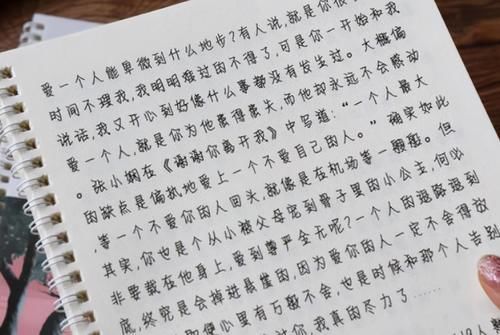 爱一个人能卑微到什么地步?有人说,就是你很
时间不理我,我明明难过的不得了,可是你一开始和我
说话,我又开心到好像什么事都没有发生过。大概偏
爱一个人,就是你为他患得患失,而他却永远不会感动
。张小娴在《谢谢你离开我》中写道:“一个人最大
的缺点是偏执地爱上一个不爱自己的人。”确实如此
,等一个不爱你的人回头,就像是在机场等一艘船。但
其实,你也是个从小被父母宠到骨子里的小公主,何必
非要栽在他身上,爱到尊严全无呢?一个人的退路退到
底,终究是会掉进悬崖的,因为爱你的人一定不会得
心里有万般不舍,也是时候和那个人告别
你,我真的尽力了……